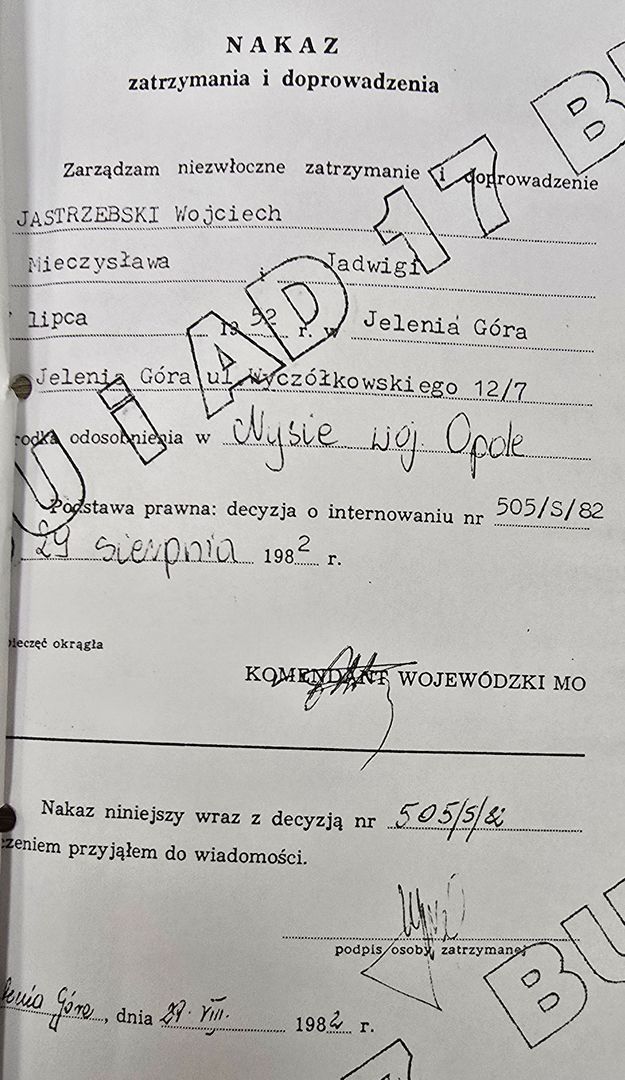 NAKAZ
zatrzymania i doprowadzenia
Zarządzam niezwłoczne zatrzymanie i doprowadzenie
JASTRZEBSKI Wojciech
Mieczysława i Jadwigi
lipca 19 52 r. w Jelenia Góra
Jelenia Góra ul. Wyczółkowskiego 12/7
rodka odosobnienia w Nysie woj. Opole
Podstawa prawna: decyzja o internowaniu nr 505/S/82
29 sierpnia 1982 r.
pieczęć okrągła
KOMENDANT WOJEWÓDZKI MO
Nakaz niniejszy wraz z decyzją nr 505/S/82
czeniem przyjąłem do wiadomości.
podpis osoby zatrzymanej
lenia Góra, dnia 29. VIII. 1982 r.
U i AD 17 B
BU